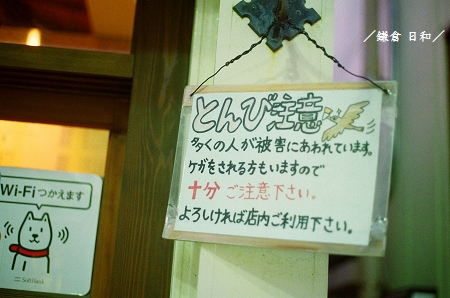 ／鎌倉 日和／
とんび注意
多くの人が被害にあわれています。
ケガをされる方もいますので
十分 ご注意下さい。
よろしければ店内ご利用下さい。
Wi-Fiつかえます
SoftBank